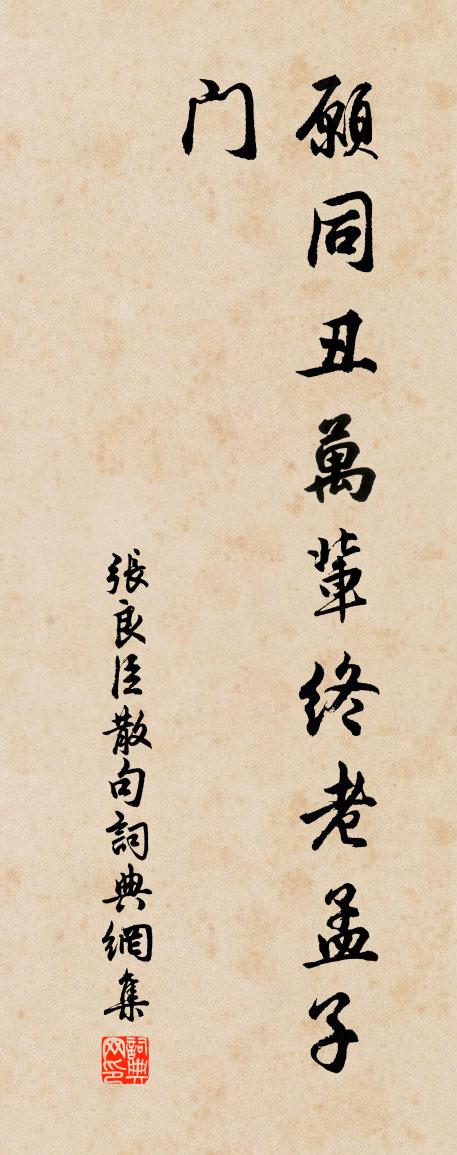 願同丑萬輩終老孟子
門
張良臣散句詞典網集
詞典
网印